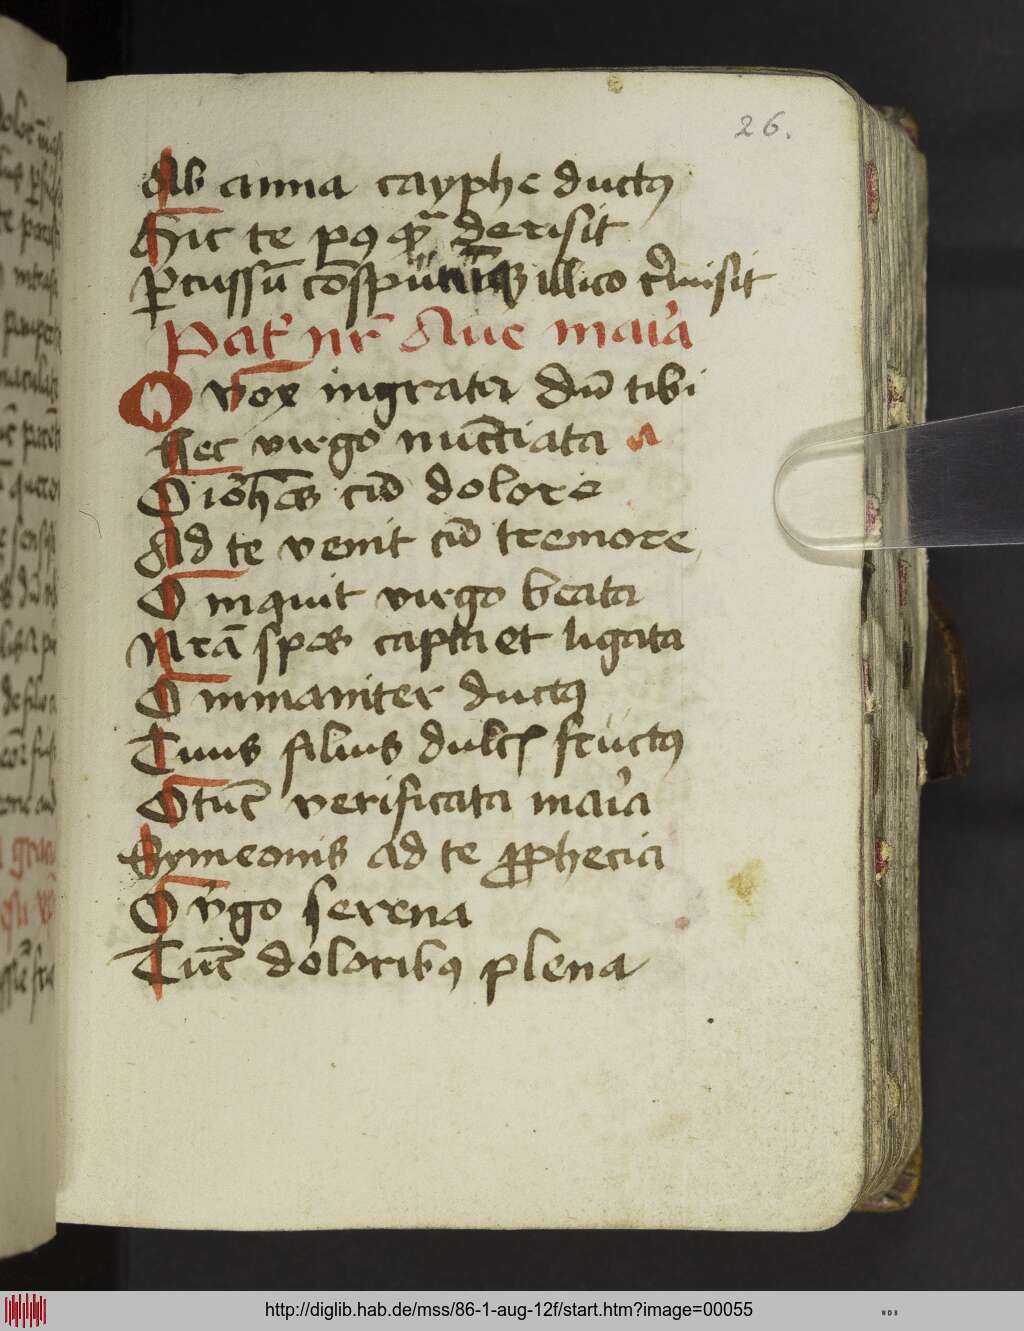 26.
Ab anna cayphe ductꝰ
Hic te pꝰ derisit
ꝑcussū cōspu illico r̓misit
Pat̓ nr̄ Aue mai̓a
O vox ingrata dū tibi
Hec virgo nūctiata a
O ioh̄es cū dolore
Ad te venit cū tremore
O inquit virgo beata
Nr̄a spes capta et ligata
O inmaniter ductꝰ
Tuus filius dulcꝭ fructꝰ
O tūc verificata mai̓a
Symeonis ad te ꝓphecia
O v̓go serena
Tūc doloribꝰ plena
http://diglib.hab.de/mss/86-1-aug-12f/start.htm?image=00055